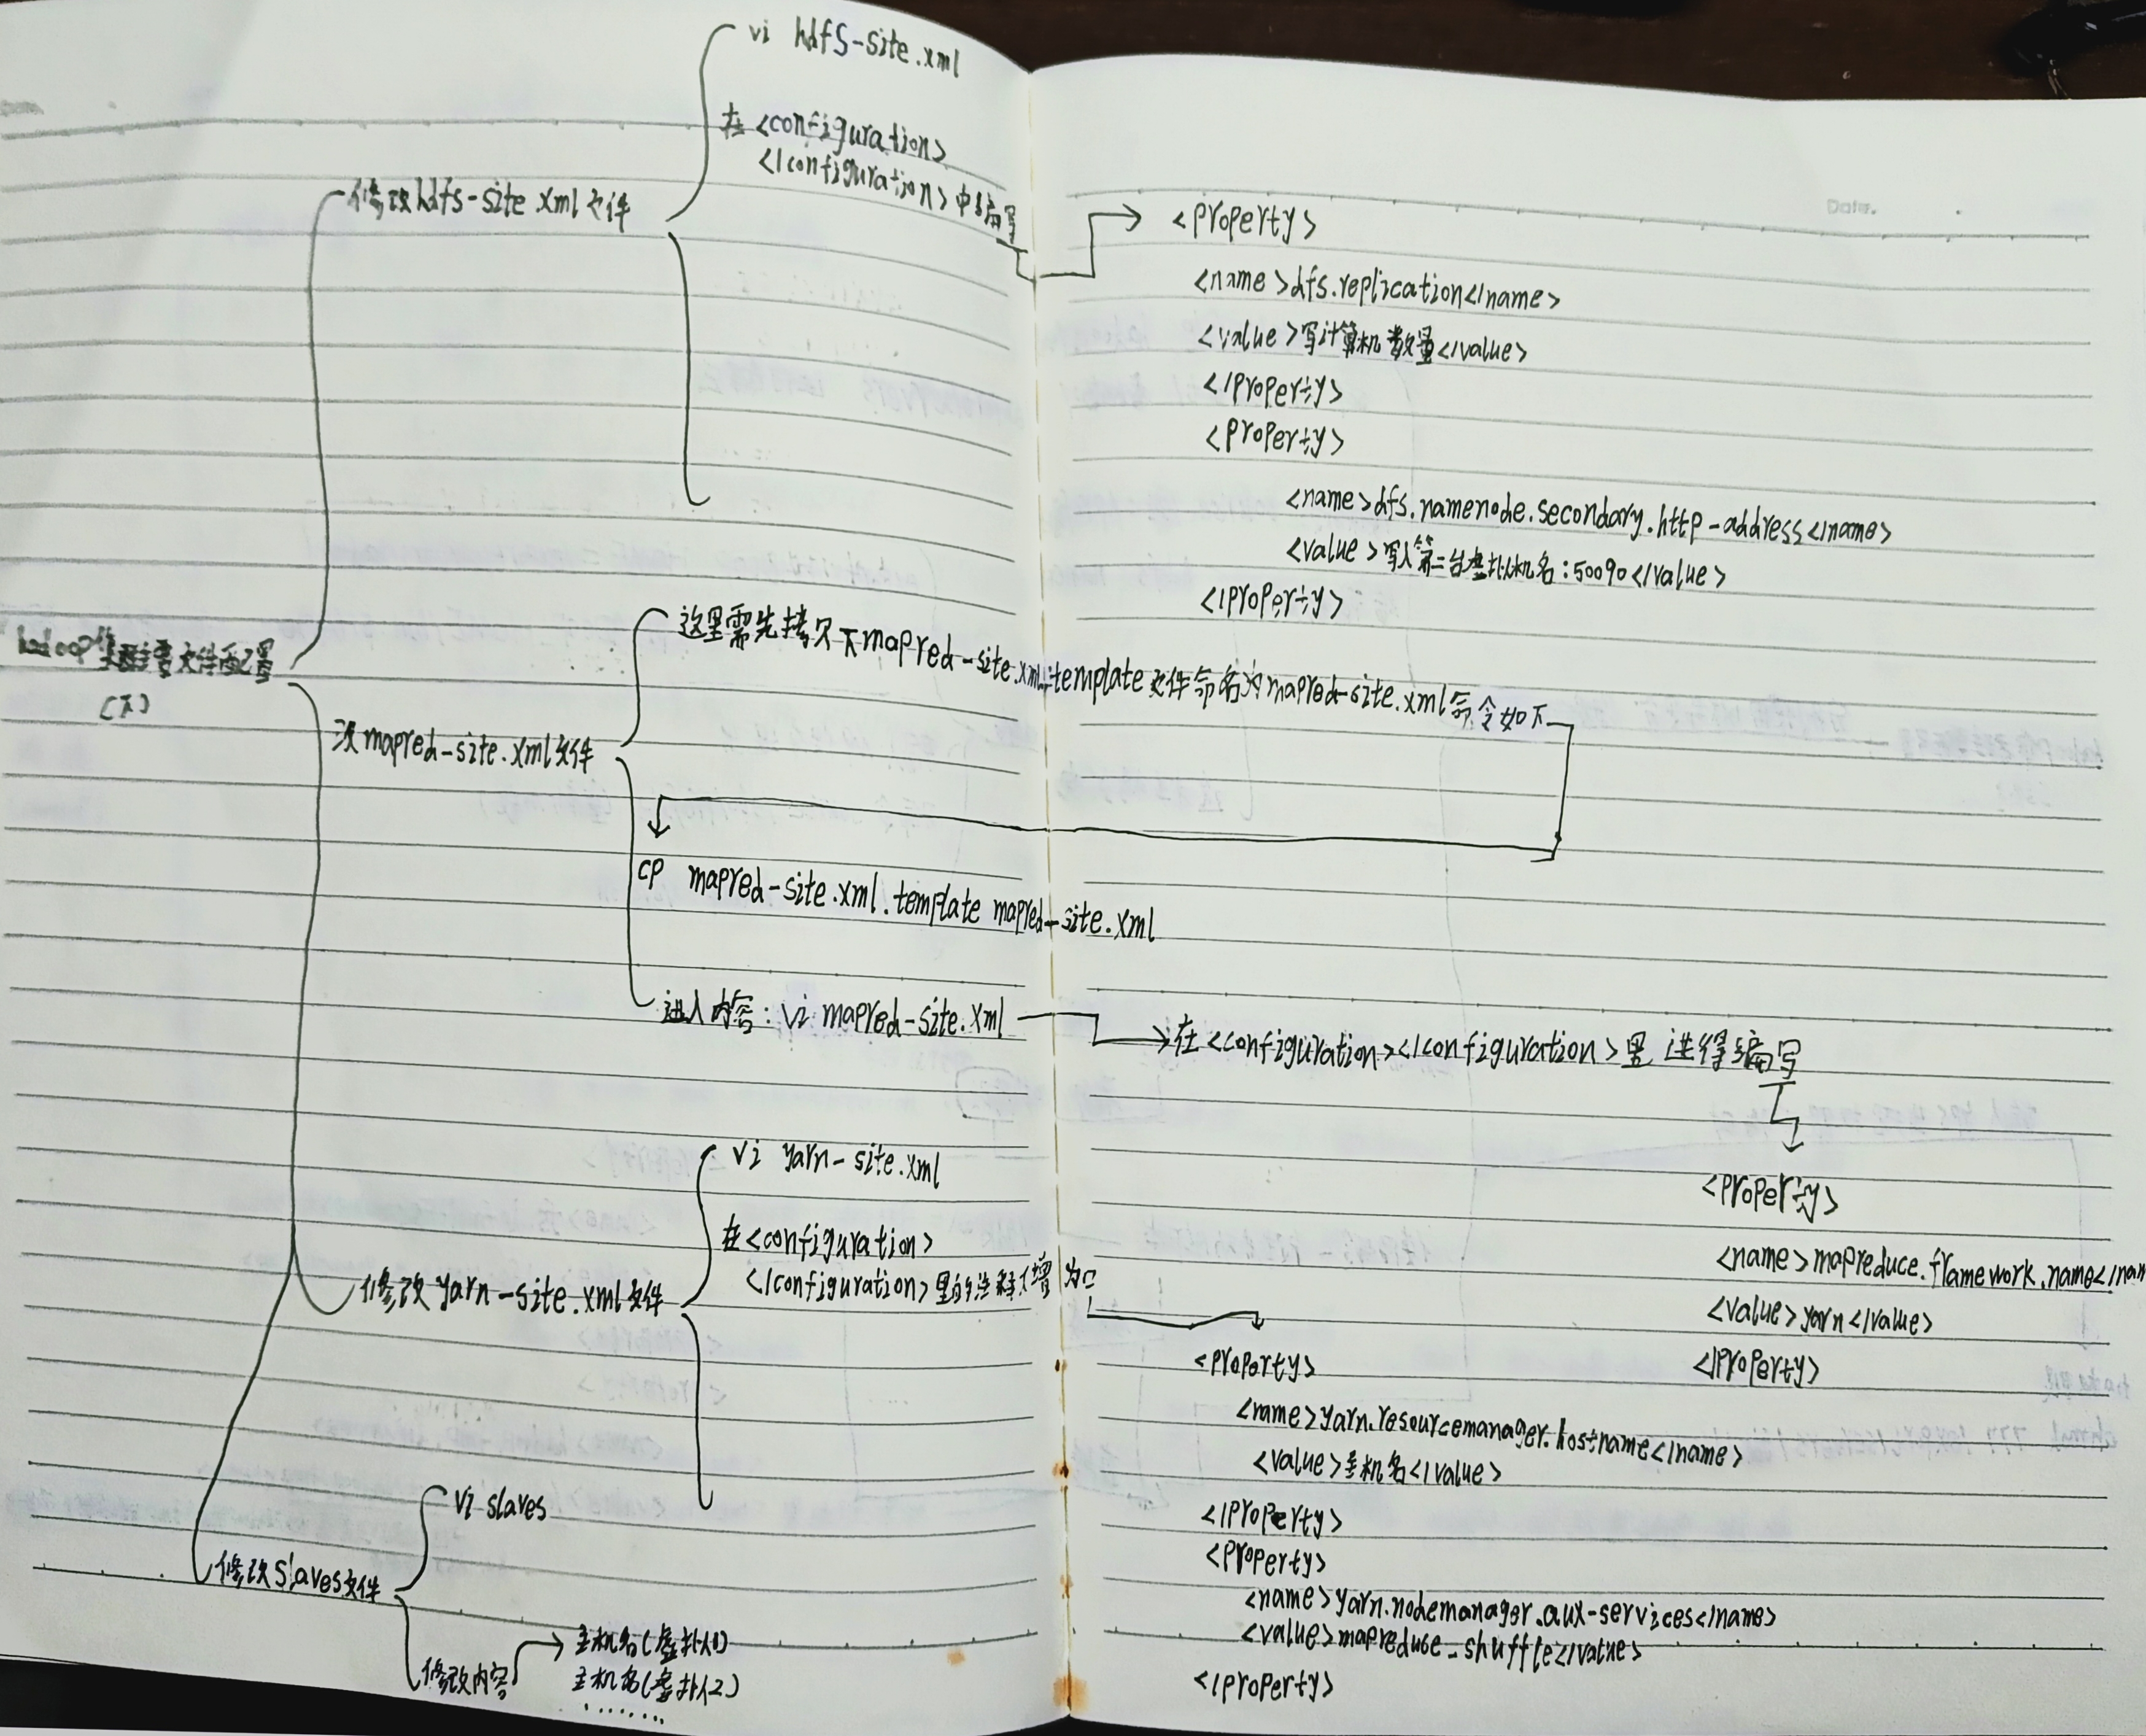 vi hdfs-site.xml
在<configuration>
</configuration>中编写
修改hdfs-site.xml文件
Date.
<property>
<name>dfs.replication</name>
<value>写计算机数量</value>
</property>
<property>
<name>dfs.namenode.secondary.http-address</name>
<value>写入第二台虚拟机名:50090</value>
</property>
hadoop集群主要文件配置
(下)
mapred-site.xml文件
这里需先拷贝下mapred-site.xml.template文件命名为mapred-site.xml命令如下
cp mapred-site.xml.template mapred-site.xml
进入内容:vi mapred-site.xml
在<configuration></configuration>里进行编写
<property>
<name>mapreduce.flamework.name</nam
<value>yarn</value>
</property>
修改yarn-site.xml文件
vi yarn-site.xml
在<configuration>
</configuration>里的注释
<property>
<name>yarn.resourcemanager.hostname</name>
<value>主机名</value>
</property>
<property>
<name>yarn.nodemanager.aux-services</name>
<value>mapreduce_shuffle</value>
</property>
修改slaves文件
vi slaves
修改内容
主机名(虚拟1)
主机名(虚拟2)
.......